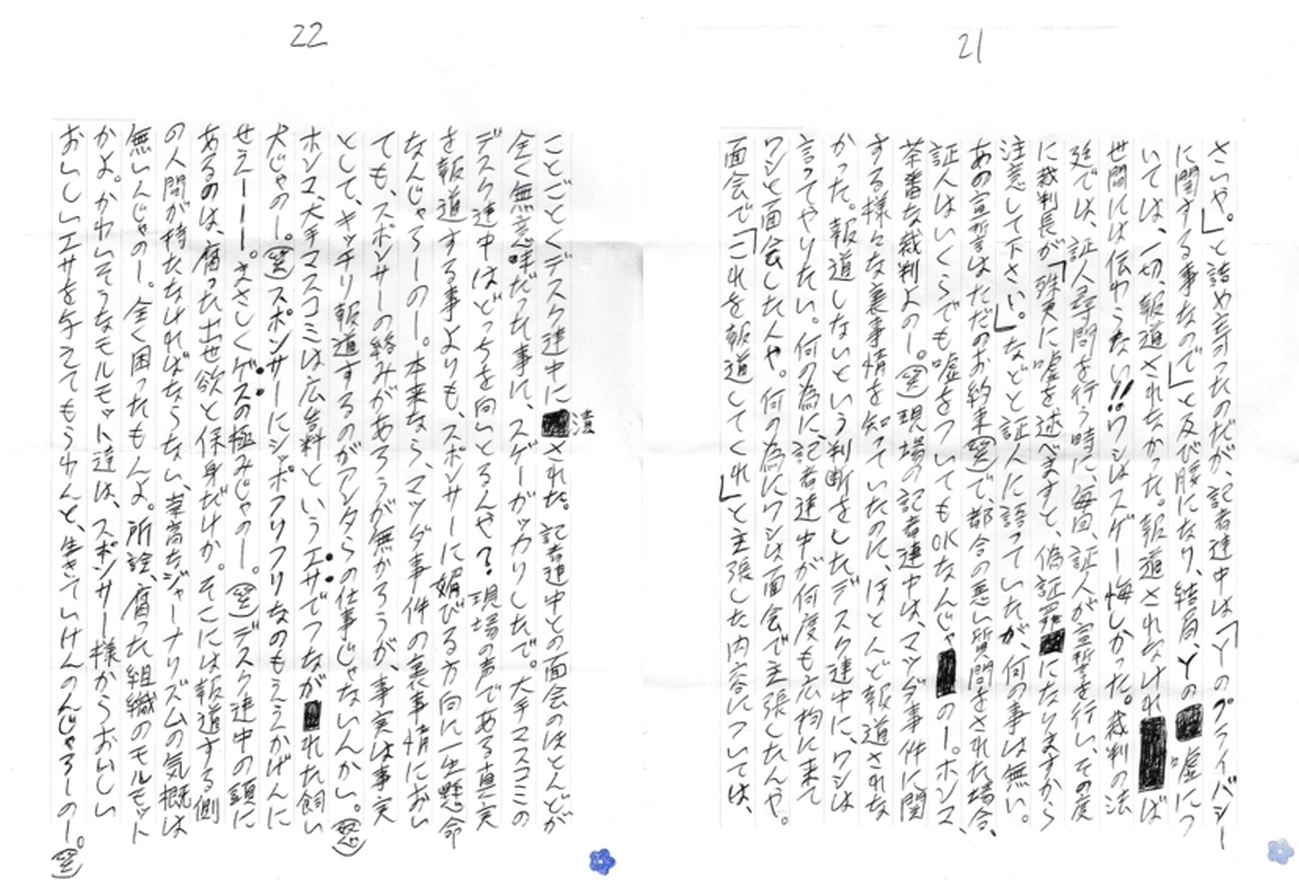 21
さいや。」と詰め寄ったのだが、記者連中は「Yのプライバシー
に関する事なので」と及び腰になり、結局、Yの嘘につ
いては、一切、報道されなかった。報道されなければ
世間には伝わらない!!ワシはスゲー悔しかった。裁判の法
廷では、証人尋問を行う時に、毎回、証人が宣誓を行い、その度
に裁判長が「殊更に嘘を述べますと、偽証罪になりますから
注意して下さい。」などと証人に語っていたが、何の事は無い。
あの宣誓はただのお約束(笑)で、都合の悪い質問をされた場合、
証人はいくらでも嘘をついてもOKなんじゃのー。ホンマ、
茶番な裁判よのー。(笑)現場の記者連中は、マツダ事件に関
する様々な裏事情を知っていたのに、ほとんど報道されな
かった。報道しないという判断をしたデスク連中に、ワシは
言ってやりたい。何の為に、記者連中が何度も広拘に来て
ワシと面会したんや。何の為にワシは面会で主張したんや。
面会で「これを報道してくれ」と主張した内容については、
22
ことごとくデスク連中に潰された。記者連中との面会のほとんどが
全く無意味だった事に、スゲーガッカリしたで。大手マスコミの
デスク連中はどっちを向いとるんや?現場の声である真実
を報道する事よりも、スポンサーに媚びる方向に一生懸命
なんじゃろーのー。本来なら、マツダ事件の裏事情におい
ても、スポンサーの絡みがあろうが無かろうが、事実は事実
として、キッチリ報道するのがアンタらの仕事じゃないんかい。(怒)
ホンマ、大手マスコミは広告料というエサでつながれた飼い
犬じゃのー。(笑)スポンサーにシッポフリフリなのもええかげんに
せえーーー。まさしくゲスの極みじゃのー。(笑)デスク連中の頭に
あるのは、腐った出世欲と保身だけか。そこには報道する側
の人間が持たなければならない、崇高なジャーナリズムの気概は
無いんじゃのー。全く困ったもんよ。所詮、腐った組織のモルモット
かよ。かわいそうなモルモット達は、スポンサー様からおいしい
おいしいエサを与えてもらわんと、生きていけんのんじゃろーのー。(笑)